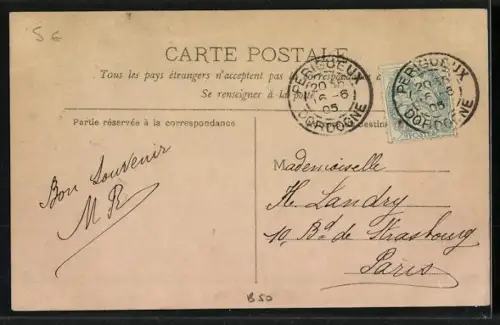 5 €
CARTE POSTALE
Tous les pays étrangers n'acceptent pas la correspondance
Se renseigner à la
PÉRIGUEUX
20 35
6 - 6
05
DORDOGNE
PÉRIGUEUX
20
6
05
DORDOGNE
Partie réservée à la correspondance
Bon Souvenir
M R
Mademoiselle
H. Landry
10, Bd de Strasbourg
Paris
B50